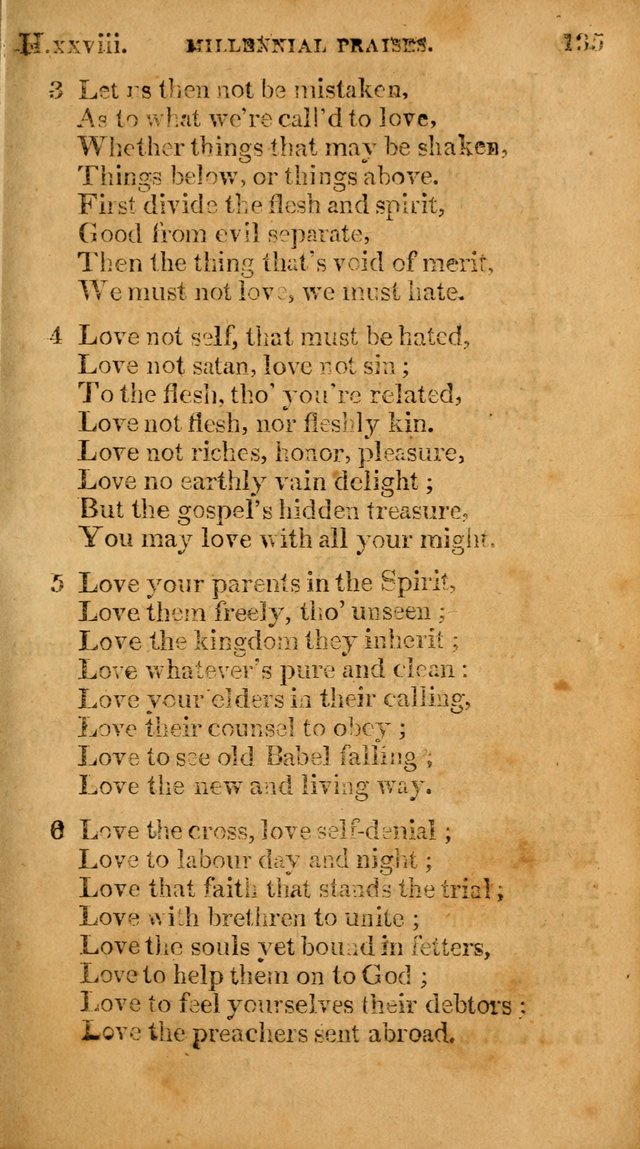 H.xxviii. MILLENNIAL PRAISES. 135
3 Let us then not be mistaken,
As to what we're call'd to love,
Whether things that may be shaken,
Things below, or things above.
First divide the flesh and spirit,
Good from evil separate,
Then the thing that's void of merit,
We must not love, we must hate.
4 Love not self, that must be hated,
Love not satan, love not sin ;
To the flesh, tho' you're related,
Love not flesh, nor fleshly kin.
Love not riches, honor, pleasure,
Love no earthly vain delight ;
But the gospel's hidden treasure,
You may love with all your might.
5 Love your parents in the Spirit,
Love them freely, tho' unseen ;
Love the kingdom they inherit ;
Love whatever's pure and clean :
Love your elders in their calling,
Love their counsel to obey ;
Love to see old Babel falling ;
Love the new and living way.
6 Love the cross, love self-denial ;
Love to labour day and night ;
Love that faith that stands the trial ;
Love with brethren to unite ;
Love the souls yet bound in fetters,
Love to help them on to God ;
Love to feel yourselves their debtors ;
Love the preachers sent abroad.